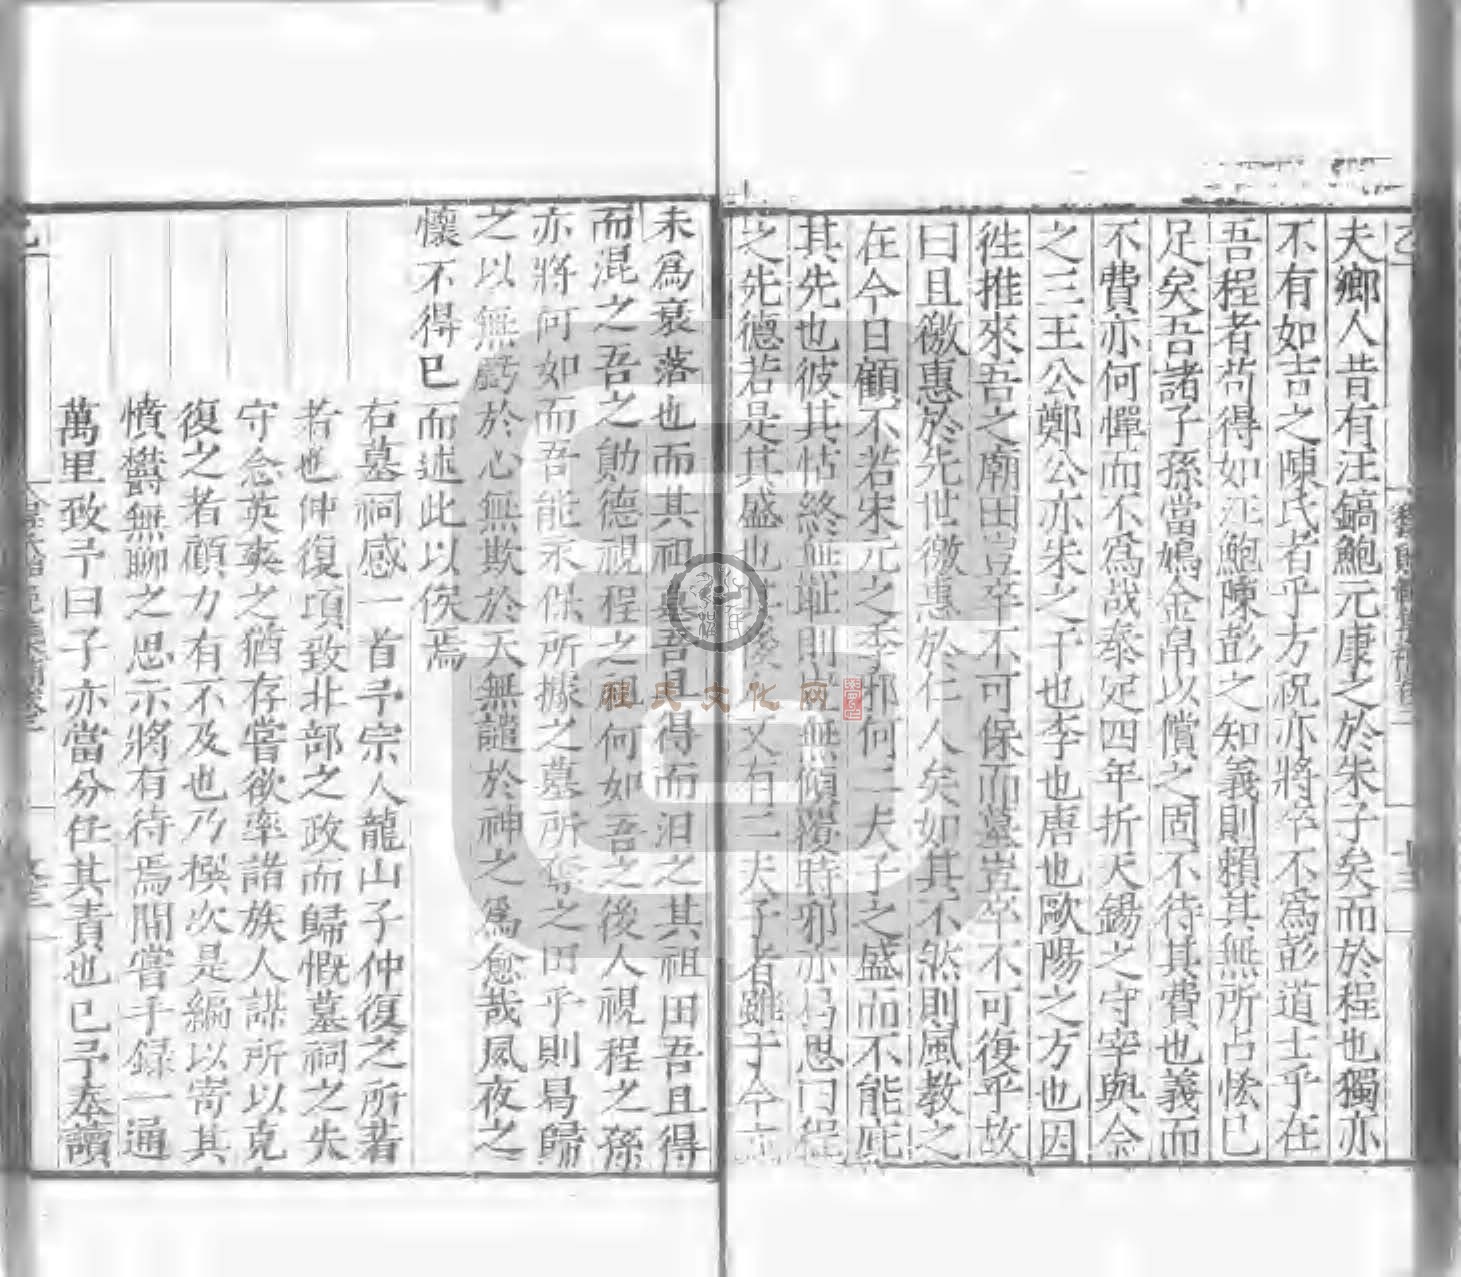 夫鄉人昔有汪鎬鮑元康之於朱子矣而於程也獨亦
不有如吉之陳氏者乎方祝亦將卒不為彭道士乎在
吾程者苟得如汪鮑陳彭之知義則賴其無所占恡已
足矣吾諸子孫當鳩金帛以償之固不待其費也義而
不費亦何憚而不為哉泰定四年折天錫之守宰與今
之三王公鄭公亦朱之子也李也唐也歐陽之方也因
徃推來吾之廟田豈卒不可保而墓豈卒不可復乎故
曰且徼惠於先世徼惠於仁人矣如其不然則風教之
在今日顧不若宋元之季邪何二夫子之盛而不能庇
其先也彼其怙終無耻則無傾覆時邪亦曷思曰程
之先德若是其盛也又有二夫子者雖于今
未為衰落也而其祖墓吾且得而汨之其祖田吾且得
而混之吾之勛德視程之祖何如吾之後人視程之孫
亦將何如而吾能永保所據之墓所奪之田乎則曷歸
之以無虧於心無欺於天無譴於神之為愈哉夙夜之
懷不得已而述此以俟焉
右墓祠感一首予宗人龍山子仲復之所著
若也仲復頃致北部之政而歸慨墓祠之失
守念英爽之猶存嘗欲率諸族人謀所以克
復之者顧力有不及也乃撰次是編以寄其
憤欝無聊之思示將有待焉間嘗手録一通
萬里致予曰子亦當分任其責也已予奉讀
程氏文化网